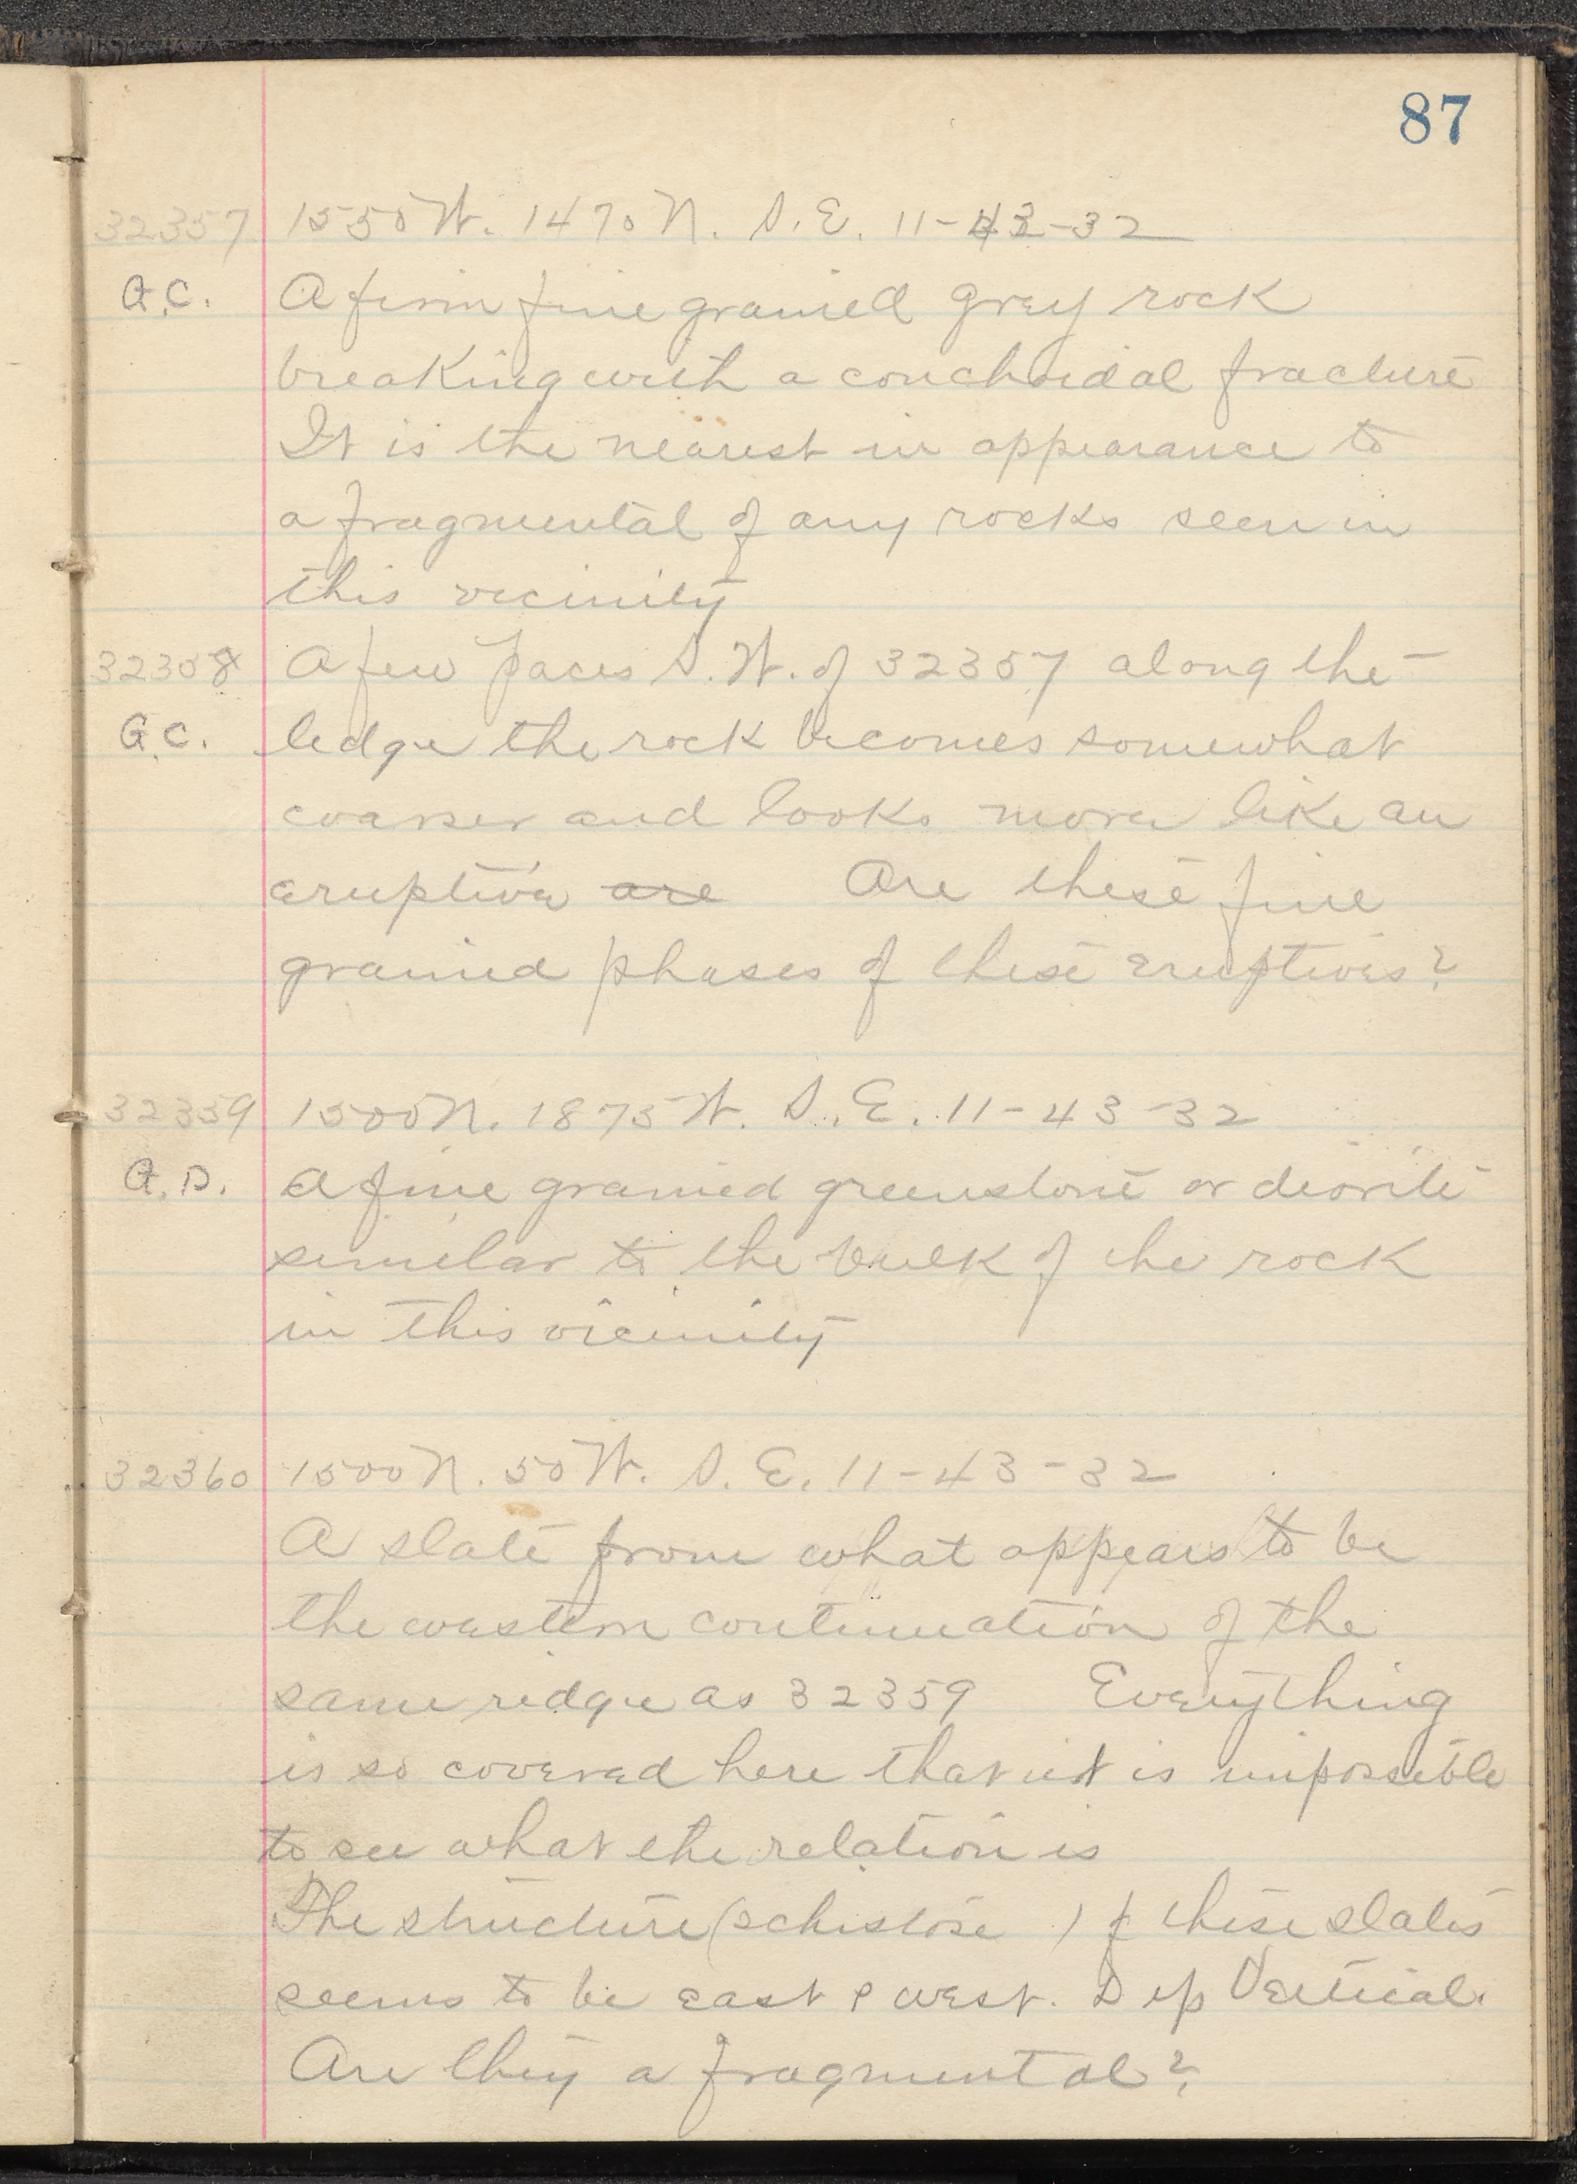 87
32357 1550 W. 1470 N. S.E. 11-43-32
A firm fine grained grey rock
breaking with a conchoidal fracture
It is the nearest in appearance to
a fragmental of any rocks seen in
this vicinity
32358 A few paces S.W. of 32357 along the
G.C. ledge the rock becomes somewhat
coarser and looks more like an
eruptive are Are these fine
grained phases of these eruptives?
32359 1500 N. 1875 W. S.E. 11-43-32
A fine grained greenstone or diorite
similar to the bulk of the rock
in this vicinity
32360 1500 N. 50 W. S.E. 11-43-32
A slate from what appears to be
the western continuation of the
same ridge as 32359 Everything
is so covered here that it is impossible
to see what the relation is
The structure (schistose ) of these slates
seems to be east & west. Dip Vertical.
Are they a fragmental?